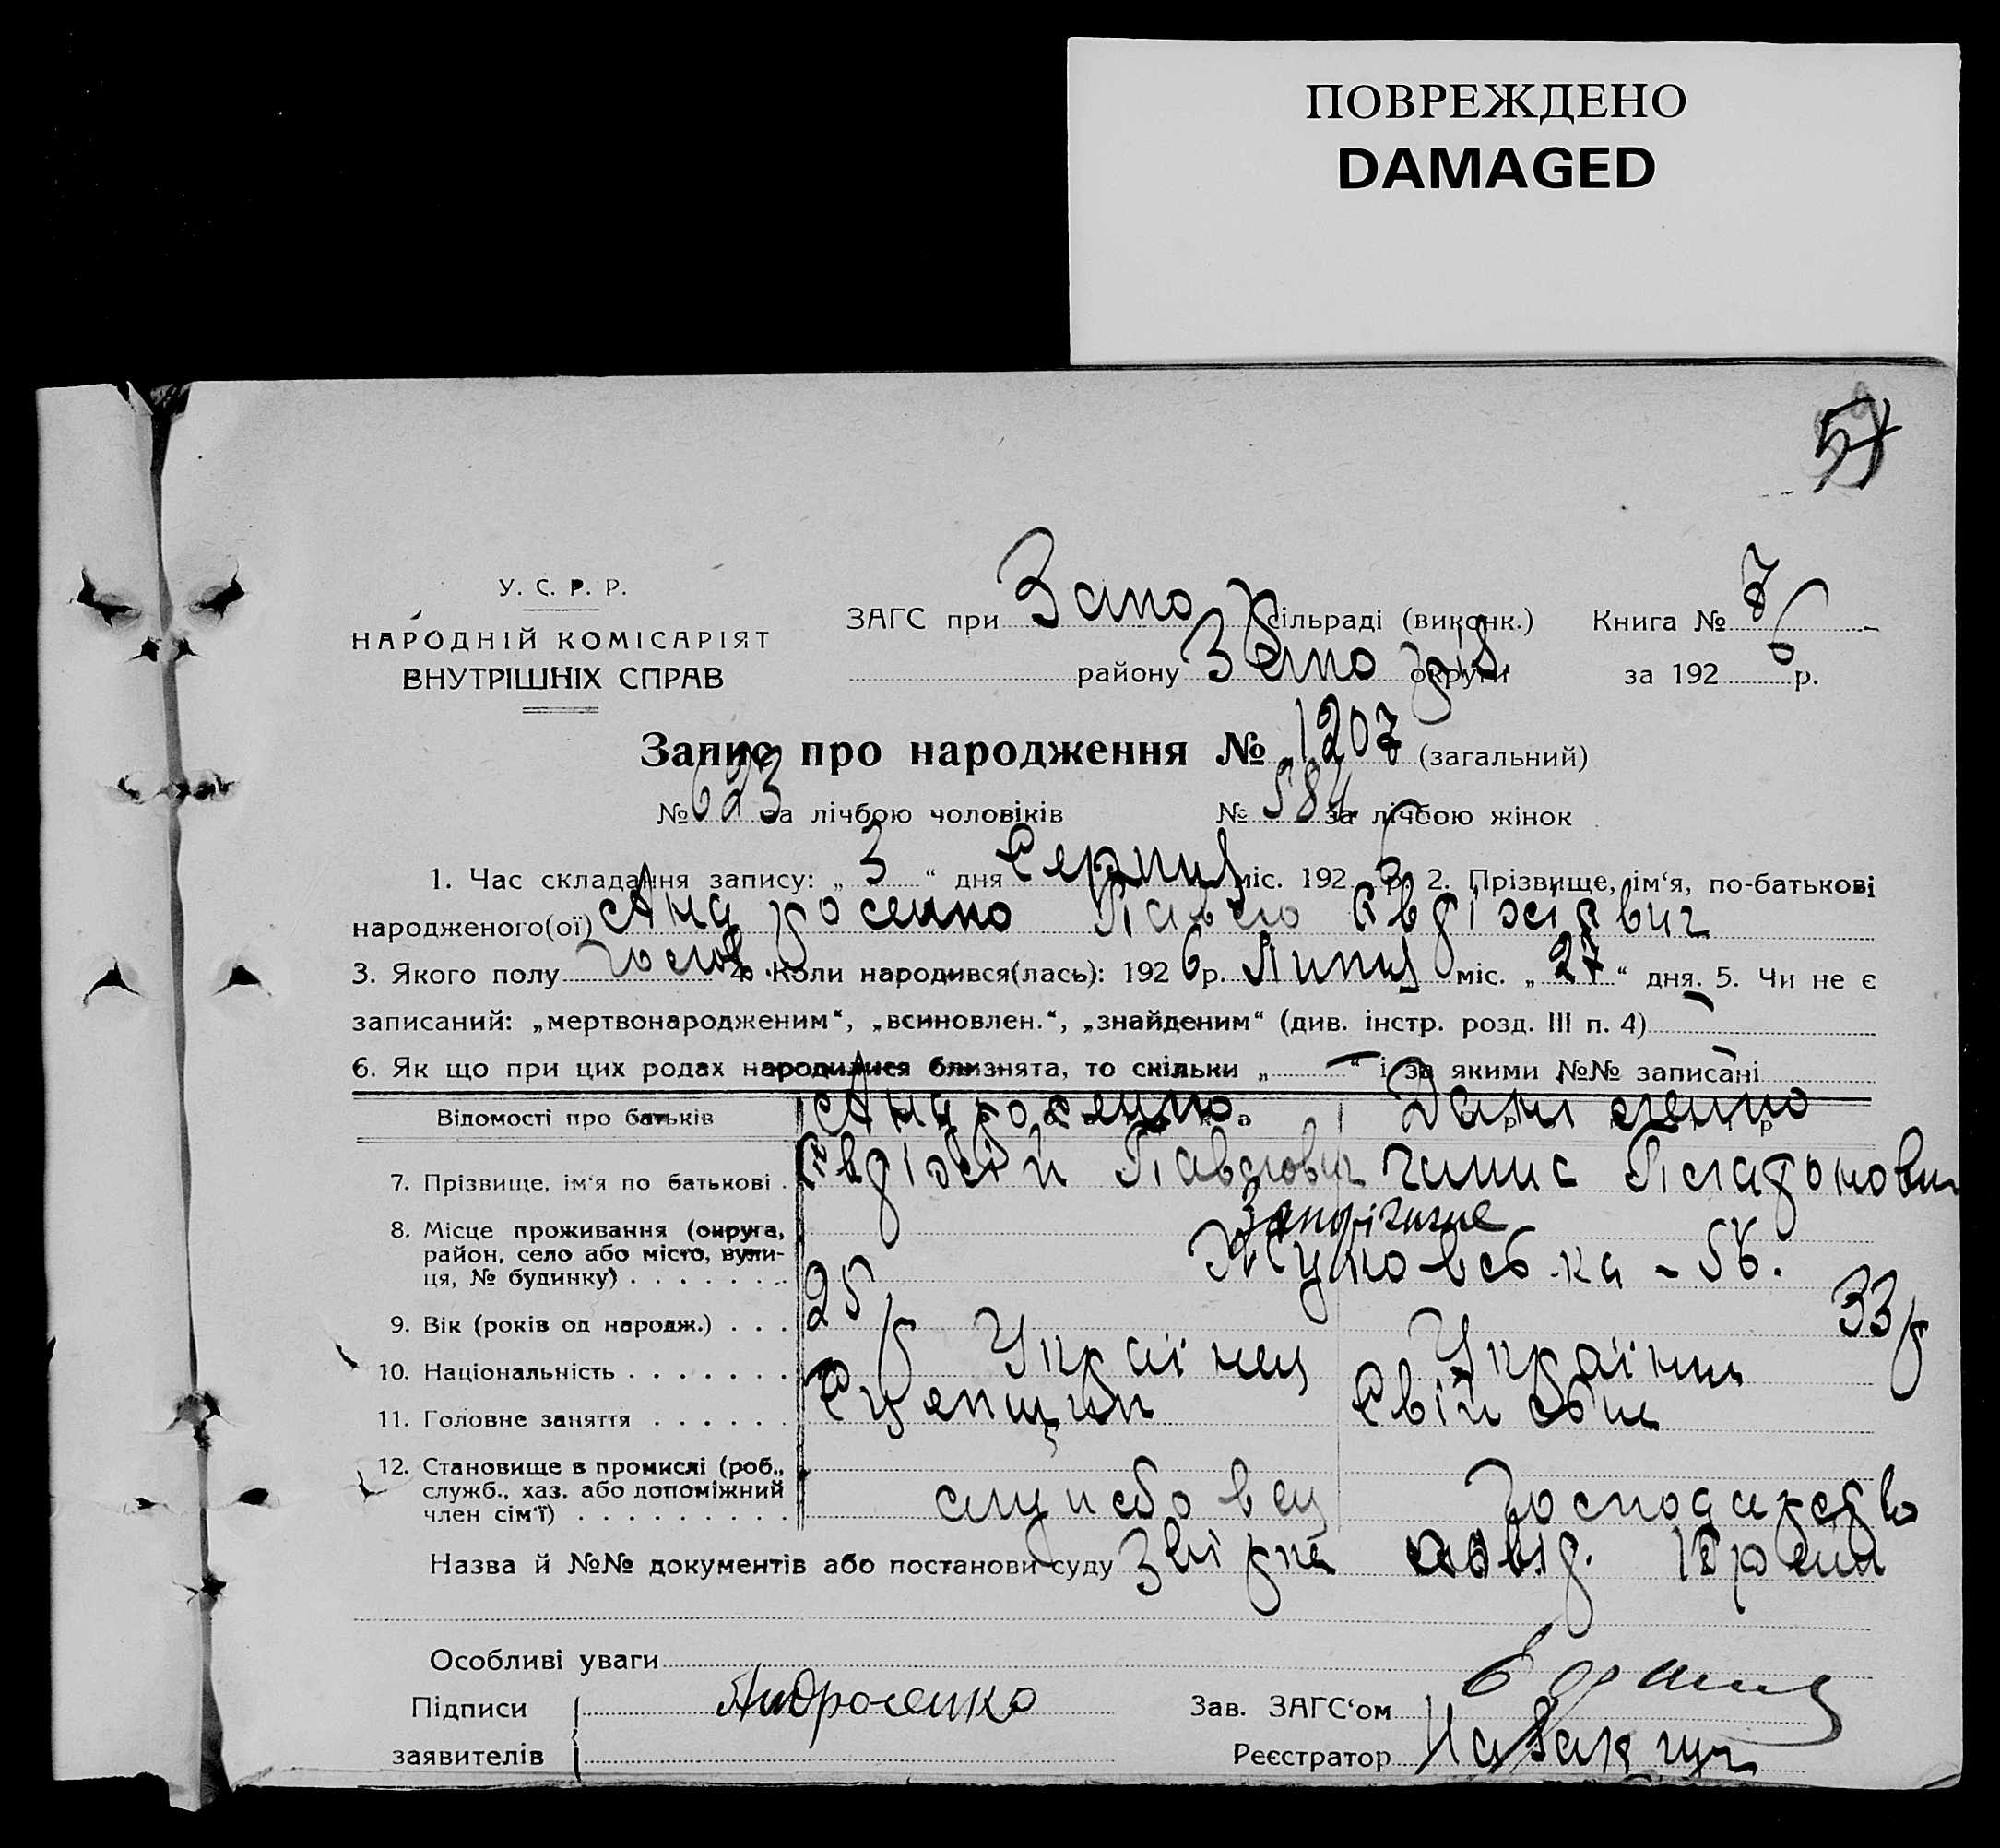 ПОВРЕЖДЕНО
DAMAGED
57
У. С. Р. Р.
НАРОДНІЙ КОМІСАРІЯТ
ВНУТРІШНІХ СПРАВ
ЗАГС при Запо сільраді (виконк.) Книга № 7
району Запоріз. округи за 1926 р.
Запис про народження № 1207 (загальний)
№ 623 за лічбою чоловіків № 584 за лічбою жінок
1. Час складання запису: „ 3 “ дня Серпня міс. 1926 р. 2. Прізвище, ім‘я, по-батькові
народженого(ої) Андросенко Павло Євдіхієвич
3. Якого полу чолов. 4. Коли народився(лась): 1926 р. Липня міс. „ 27 “ дня. 5. Чи не є
записаний: „мертвонародженим“, „всиновлен.“, „знайденим“ (див. інстр. розд. III п. 4) —
6. Як що при цих родах народилися близнята, то скільки „ — “ і за якими №№ записані —
Відомості про батьків Андросенко Даниленко
7. Прізвище, ім‘я по батькові . Євдіхій Павлович Платоновн
8. Місце проживання (округа, Запоріжжє
район, село або місто, вули- Жуковська - 56.
ця, № будинку) . . . . . . .
9. Вік (років од народж.) . . . 25 33
10. Національність . . . . . . . Українец Українка
11. Головне заняття . . . . . . Сцепщик Свійське
12. Становище в промислі (роб.,
служб., хаз. або допоміжний службовец Господарство
член сім‘ї) . . . . . . . . .
Назва й №№ документів або постанови суду Звірка посвід.
Особливі уваги
Підписи Андросенко Зав. ЗАГС‘ом
заявителів Реєстратор